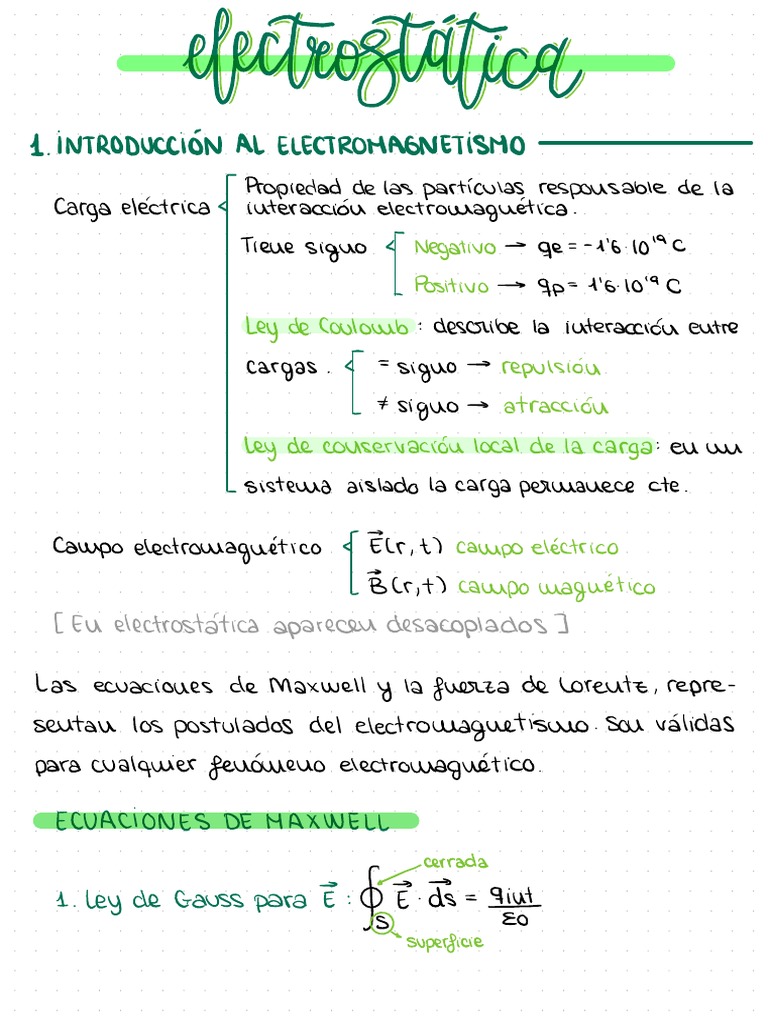 electrostática
1. INTRODUCCIÓN AL ELECTROMAGNETISMO
Carga eléctrica
Propiedad de las partículas responsable de la
interacción electromagnética.
Tiene signo
Negativo → qe = -1'6·10¹⁹ C
Positivo → qp = 1'6·10¹⁹ C
Ley de Coulomb: describe la interacción entre
cargas.
= signo → repulsión
≠ signo → atracción
Ley de conservación local de la carga: en un
sistema aislado la carga permanece cte.
Campo electromagnético
E⃗(r,t) campo eléctrico
B⃗(r,t) campo magnético
[En electrostática aparecen desacoplados]
Las ecuaciones de Maxwell y la fuerza de Lorentz, repre-
sentan los postulados del electromagnetismo. Son válidas
para cualquier fenómeno electromagnético.
ECUACIONES DE MAXWELL
cerrada
1. Ley de Gauss para E⃗: ∮s E⃗ · ds⃗ = qint/εo
superficie